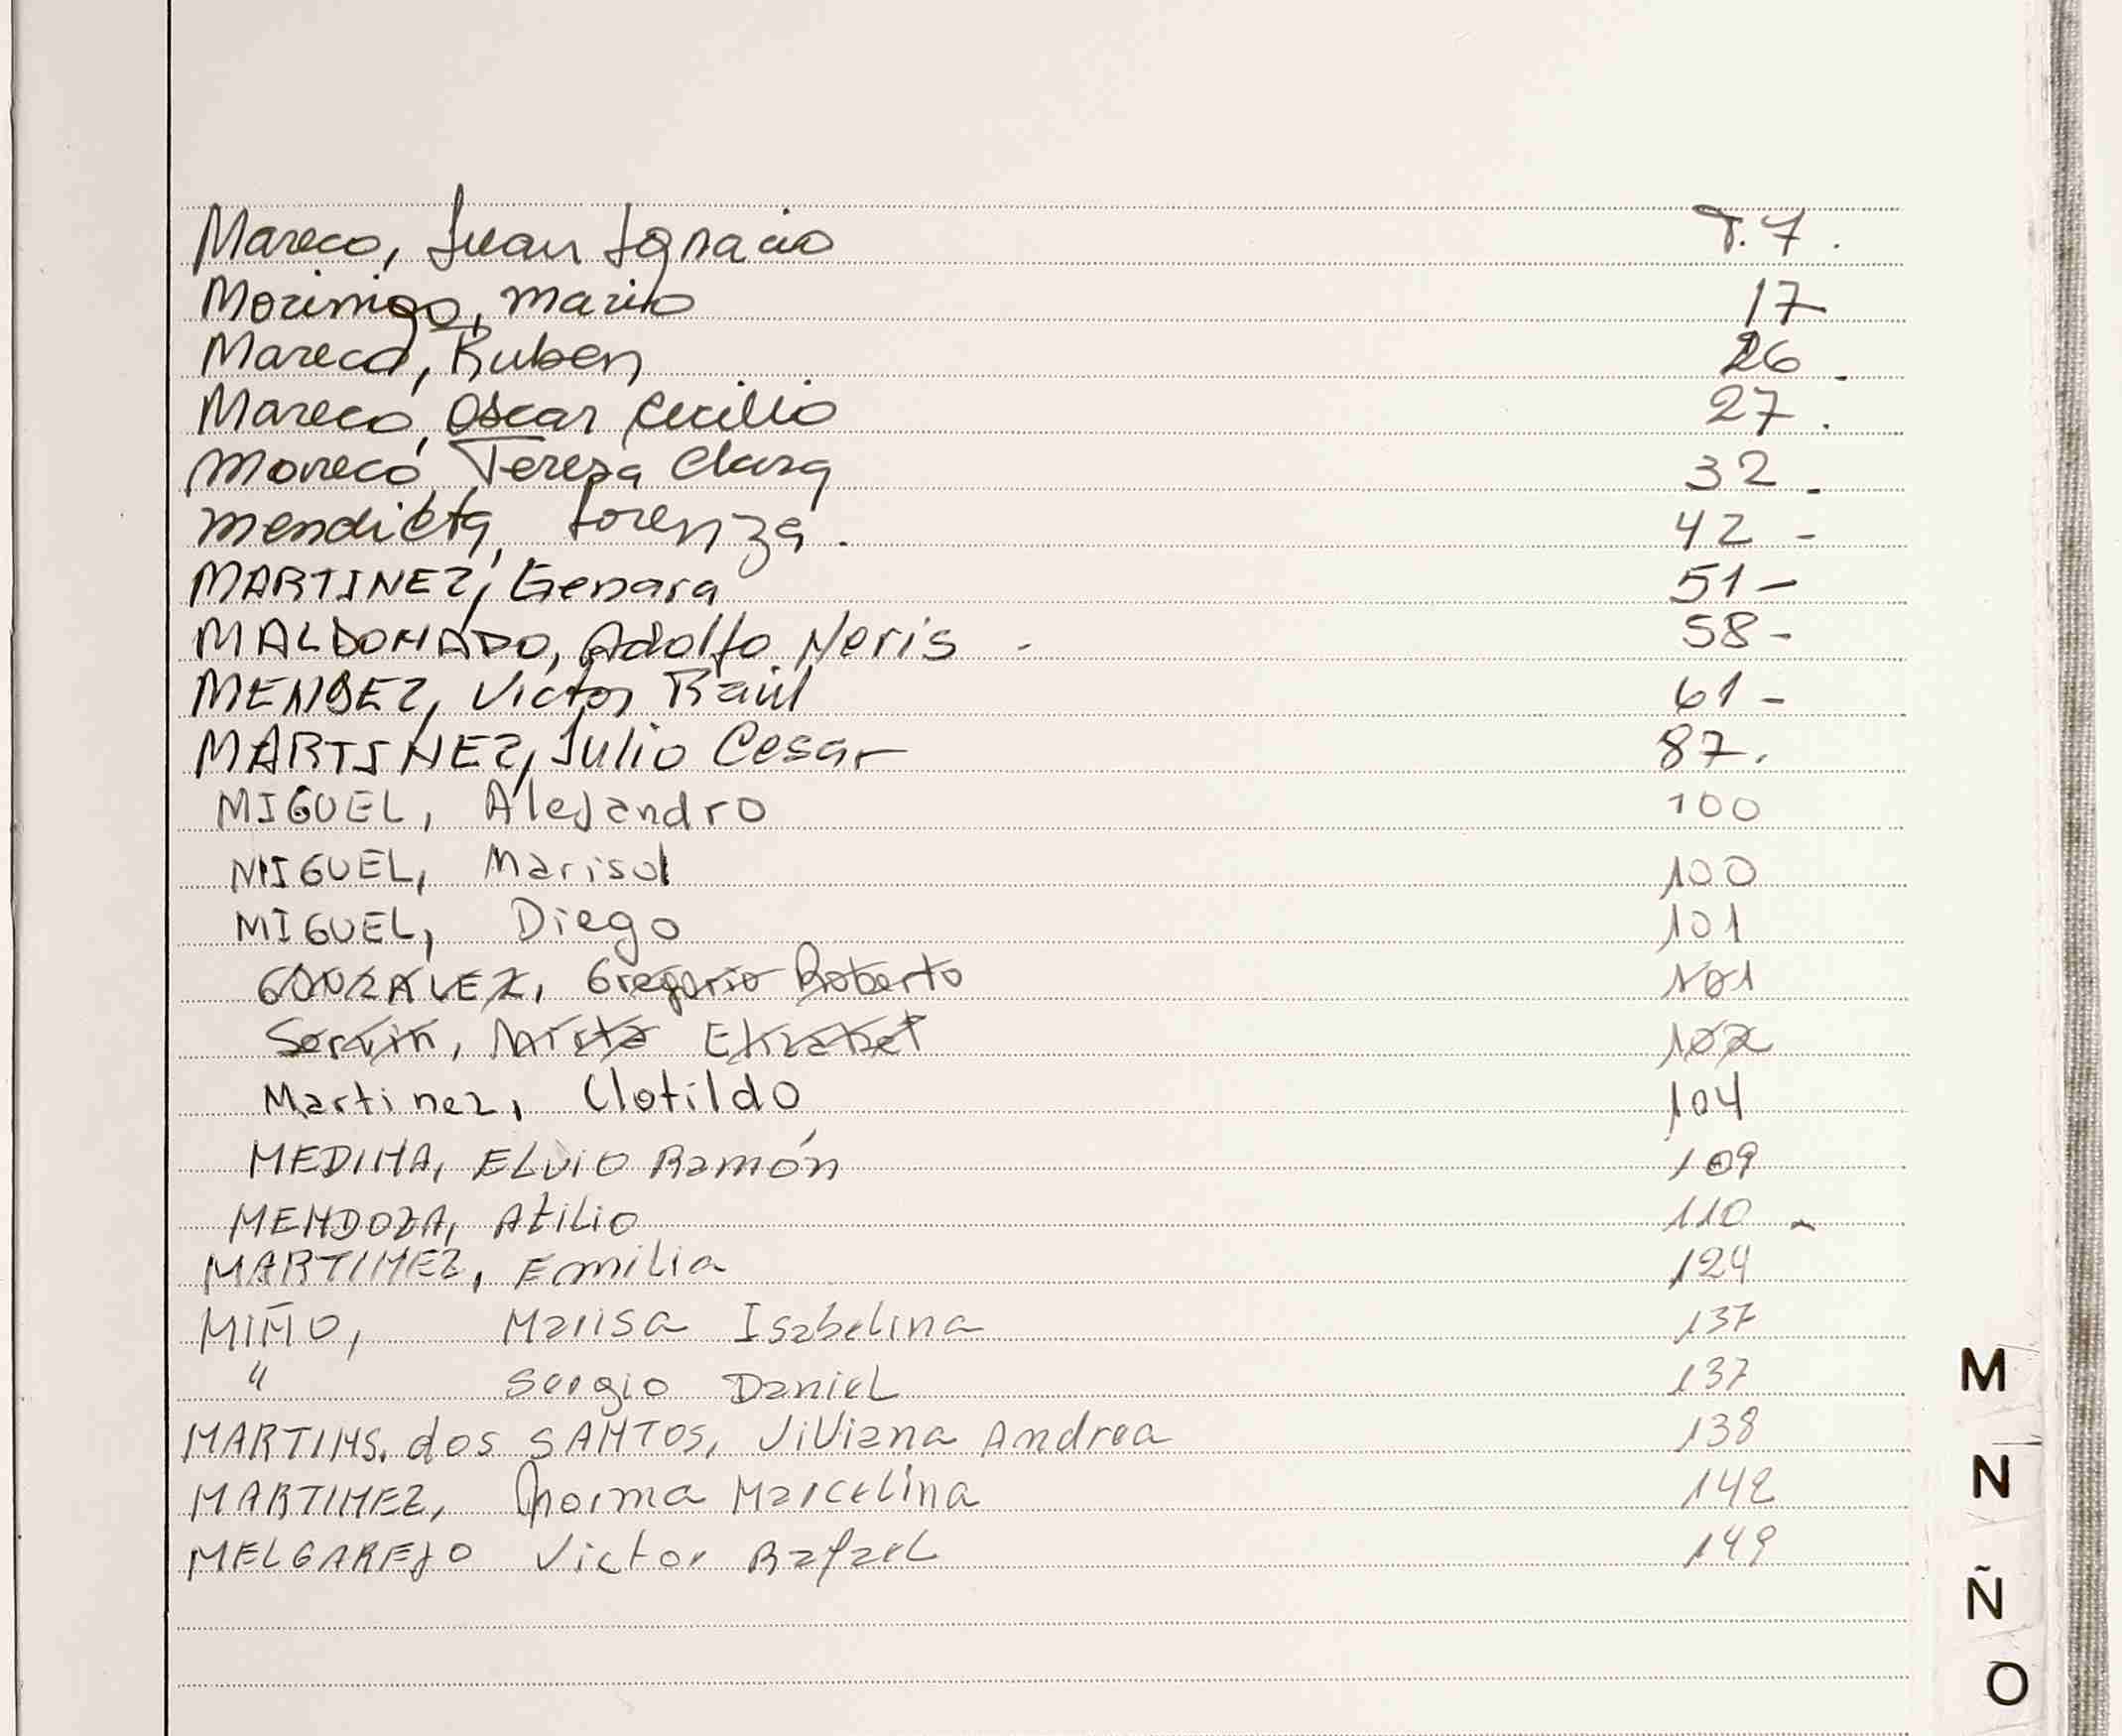 Mareco, Juan Ignacio 7.
Morinigo, Mario 17
Mareco, Ruben 26.
Mareco, Oscar Cecilio 27.
Mareco, Teresa Clara 32.
Mendieta, Lorenza. 42-
MARTINEZ, Genara 51-
MALDONADO, Adolfo Neris - 58-
MENDEZ, Victor Raúl 61-
MARTINEZ, Julio Cesar 87.
MIGUEL, Alejandro 100
MIGUEL, Marisol 100
MIGUEL, Diego 101
GONZALEZ, Gregorio Roberto 101
Servin, Mirta Elizabet 102
Martinez, Clotildo 104
MEDINA, ELVIO Ramón 109
MENDOZA, AtiLio 110 -
MARTINEZ, EmiLia 124
MIÑO, Marisa Isabelina 137
" Sergio DanieL 137
MARTINS. dos SANTOS, ViViana Andrea 138
MARTINEZ, Norma Marcelina 142
MELGAREJO Victor RafaeL 149
M
N
Ñ
O